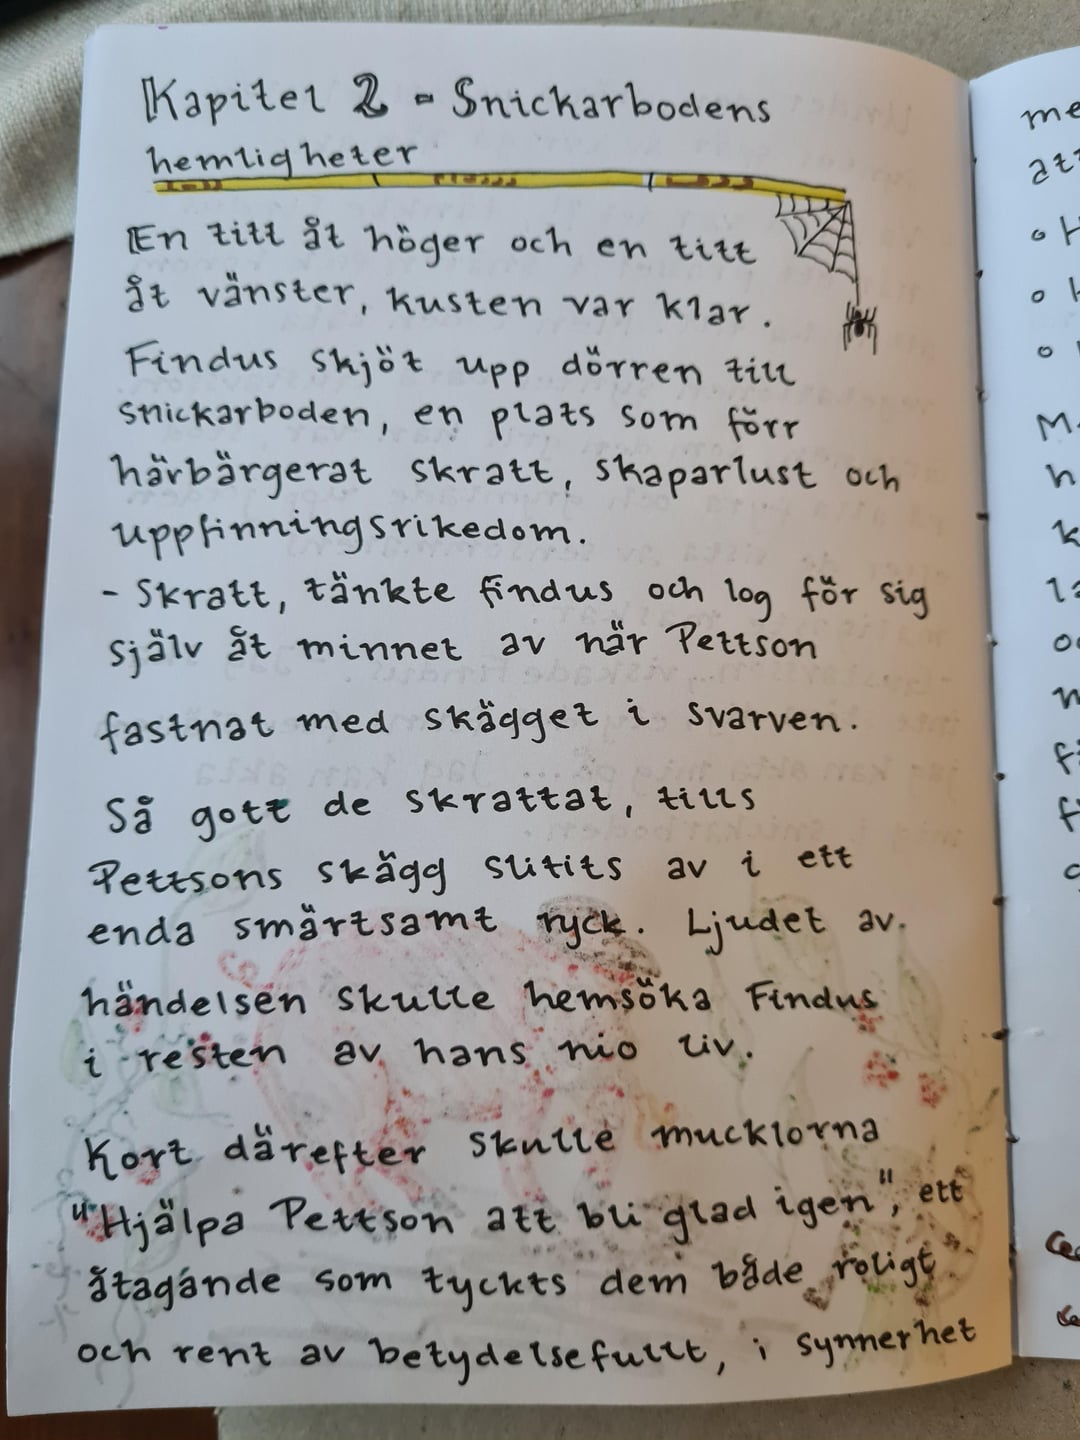 Kapitel 2 - Snickarbodens
hemligheter
En titt åt höger och en titt
åt vänster, kusten var klar.
Findus skjöt upp dörren till
snickarboden, en plats som förr
härbärgerat skratt, skaparlust och
uppfinningsrikedom.
- Skratt, tänkte findus och log för sig
själv åt minnet av när Pettson
fastnat med skägget i svarven.
Så gott de skrattat, tills
Pettsons skägg slitits av i ett
enda smärtsamt ryck. Ljudet av.
händelsen skulle hemsöka Findus
i resten av hans nio liv.
Kort därefter skulle mucklorna
"Hjälpa Pettson att bli glad igen", ett
åtagande som tyckts dem både roligt
och rent av betydelsefullt, i synnerhet